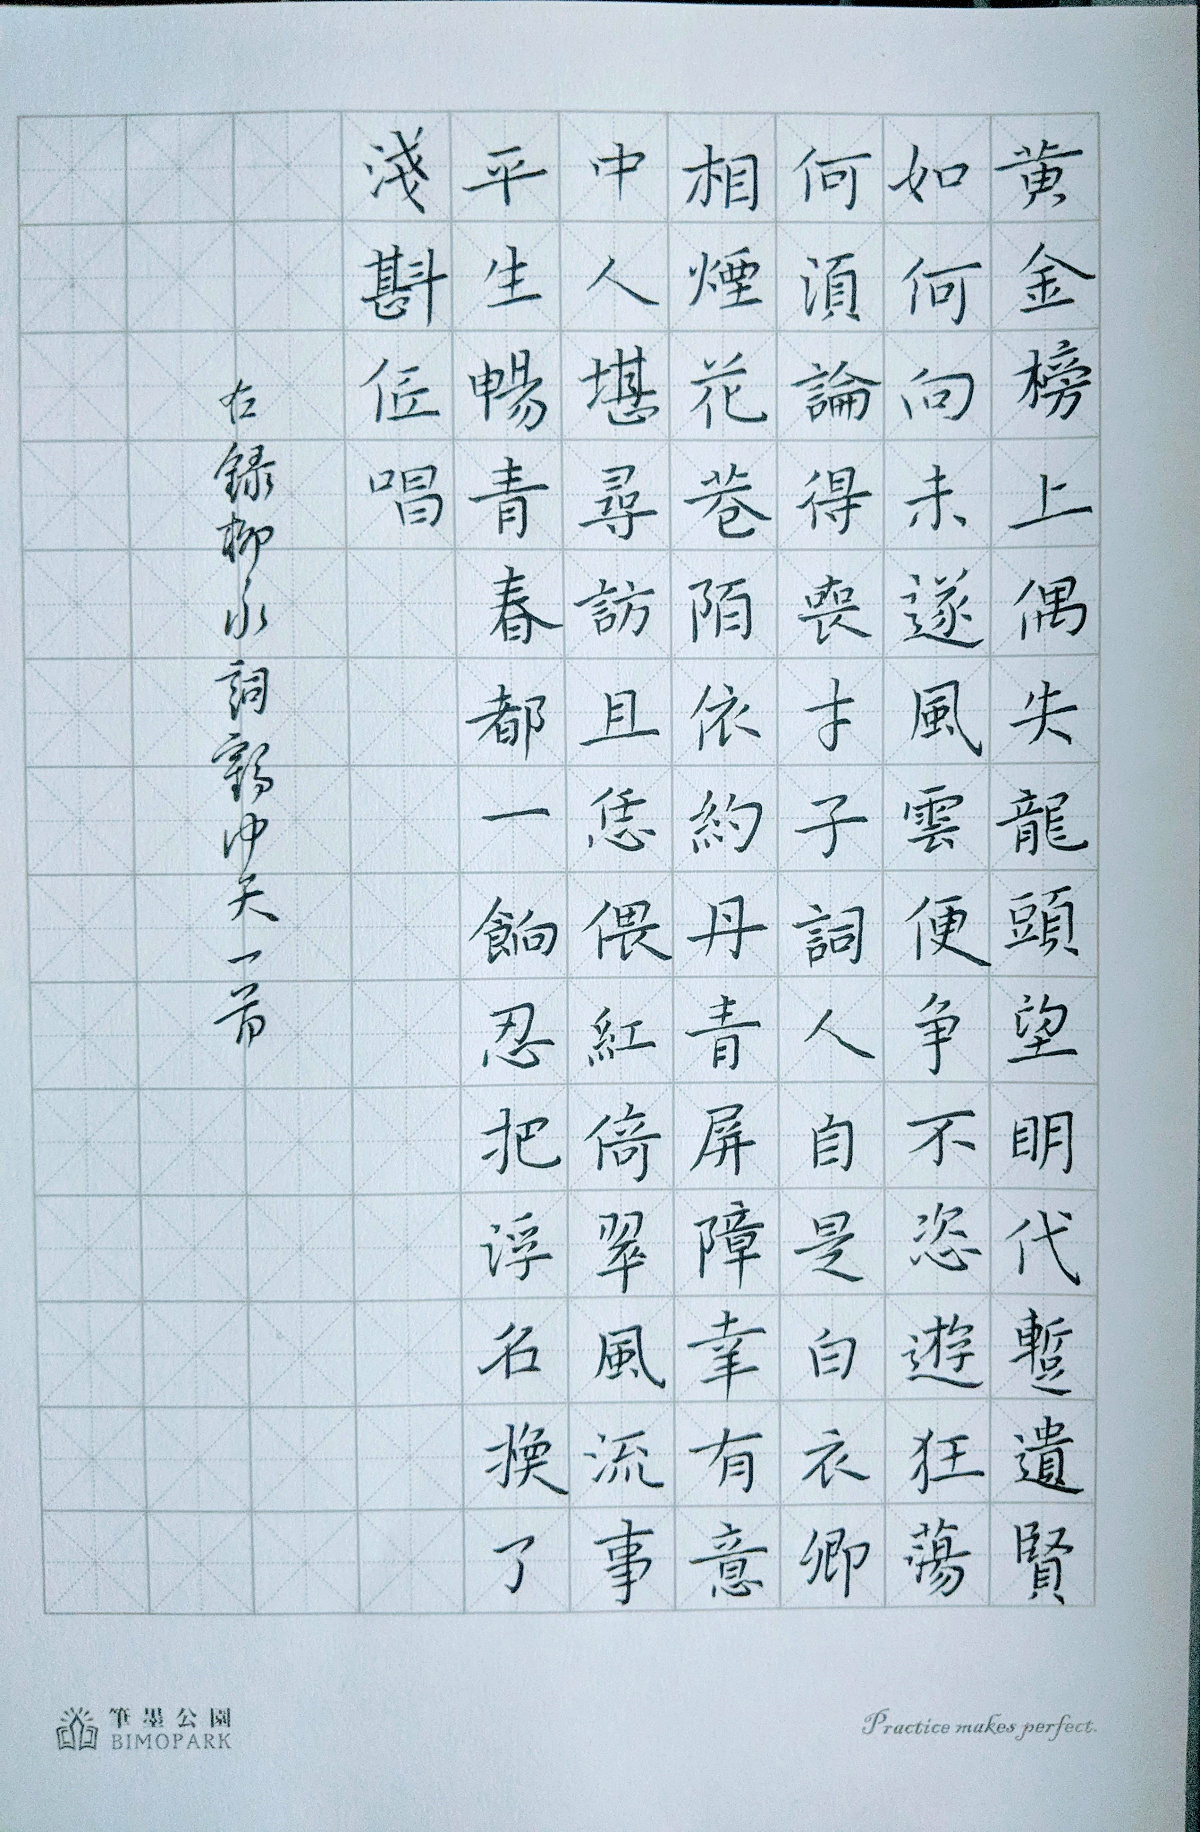 黄金榜上偶失龍頭望明代暫遺賢
如何向未遂風雲便争不恣遊狂蕩
何須論得喪才子詞人自是白衣卿
相煙花巷陌依約丹青屏障幸有意
中人堪尋訪且恁偎紅倚翠風流事
平生暢青春都一餉忍把浮名換了
淺斟低唱
右録柳永詞鶴沖天一首
筆墨公園
BIMOPARK
Practice makes perfect.